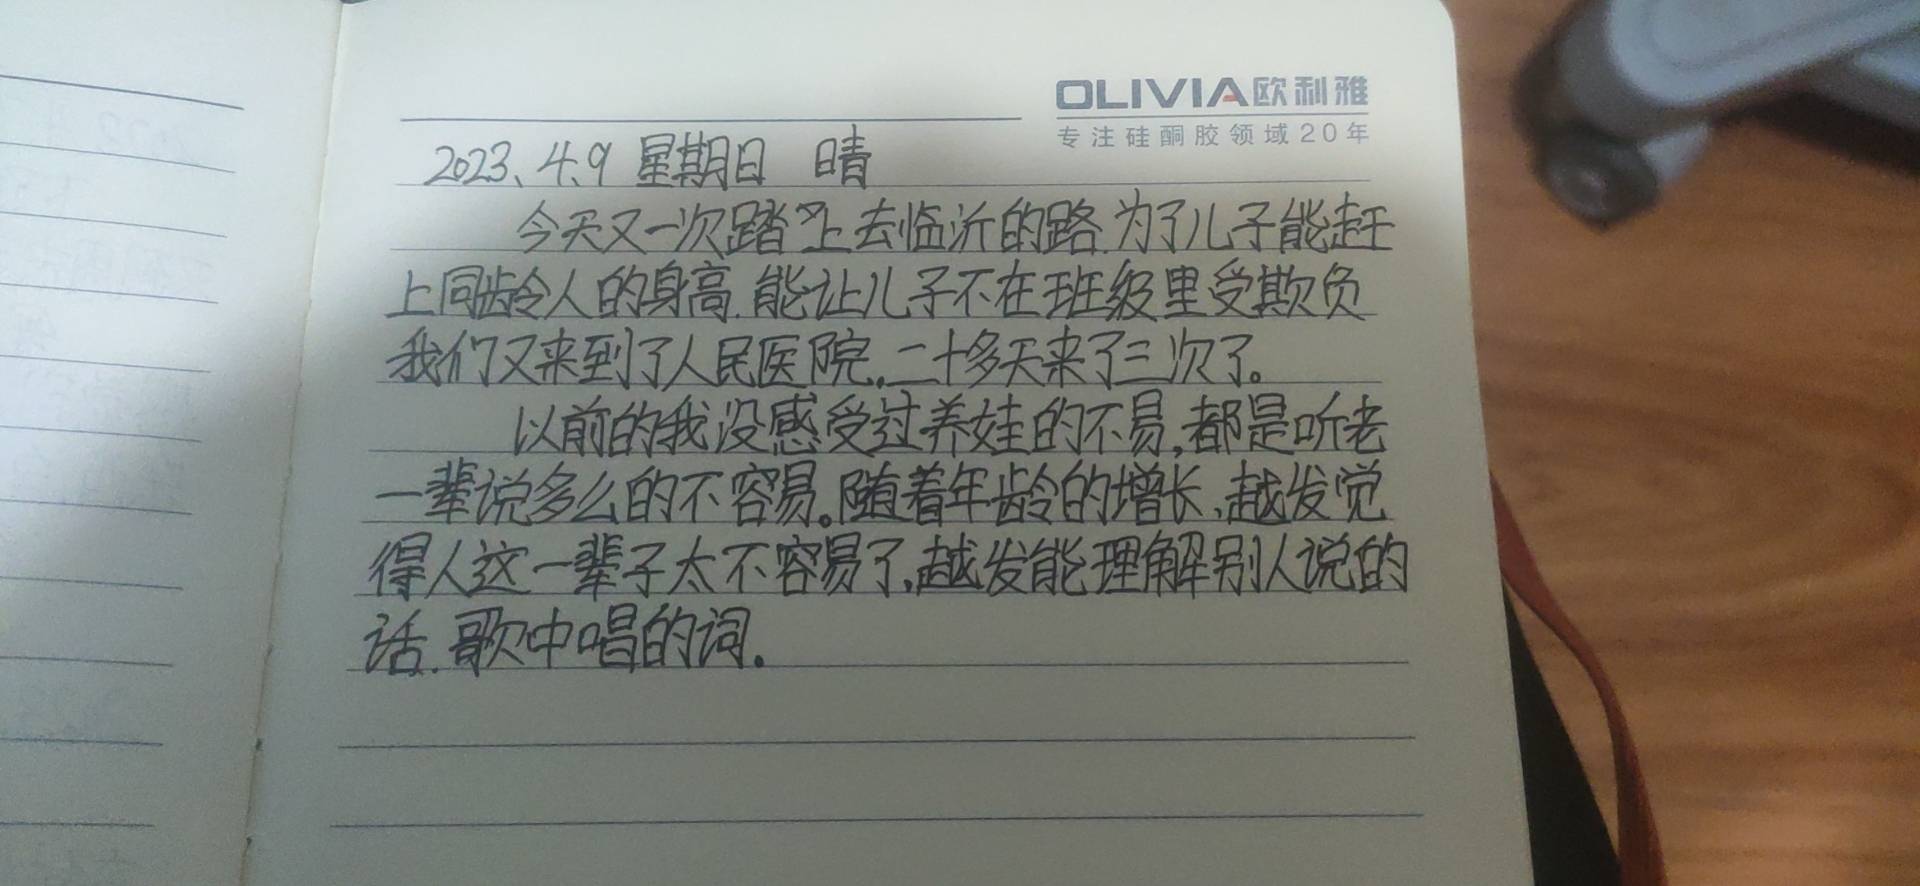 OLIVIA欧利雅
专注硅酮胶领域20年
2023、4、9 星期日 晴
今天又一次踏上去临沂的路.为了儿子能赶
上同龄令人的身高.能让儿子不在班级里受欺负
我们又来到了人民医院,二十多天来了三次了。
以前的我没感受过养娃的不易,都是听老
一辈说多么的不容易。随着年龄的增长、越发觉
得人这一辈子太不容易了,越发能理解别人说的
话.歌中唱的词.